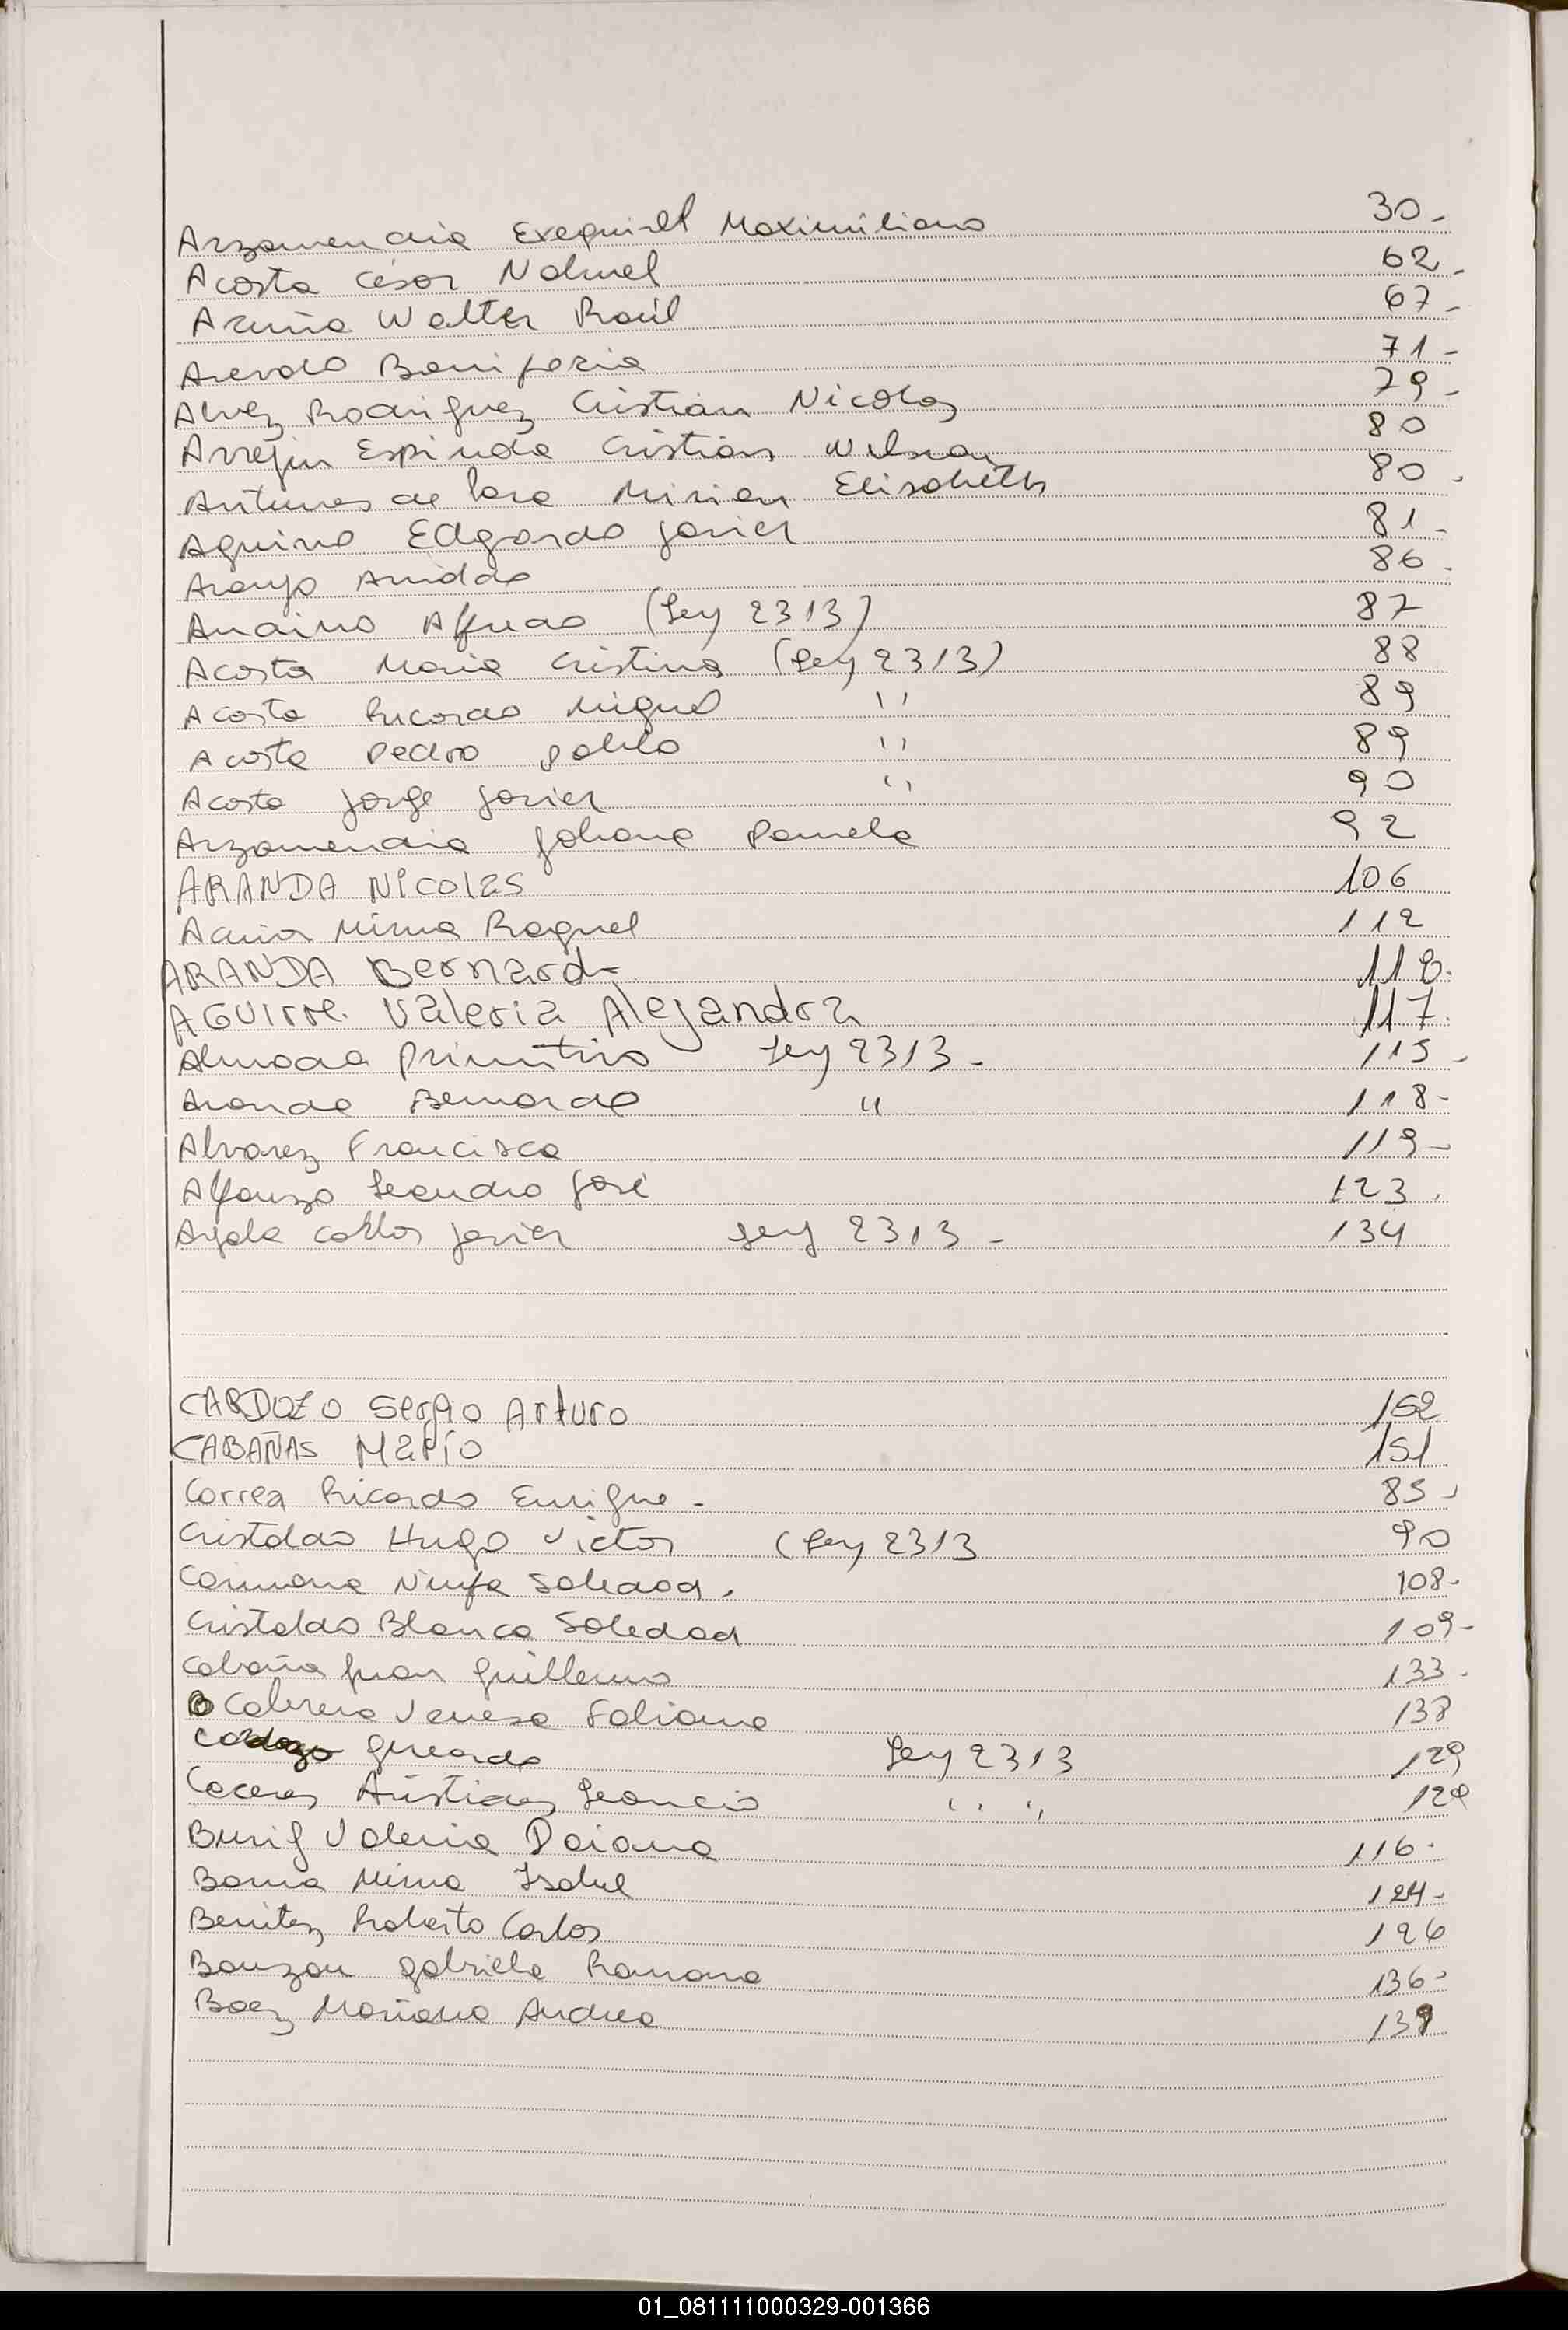 Arzamendia Exequiel Maximiliano 30-
Acosta César Nahuel 62-
Acuña Walter Raúl 67-
Acevedo Bonifacia 71-
Alvez Rodriguez Cristian Nicolas 79-
Arrejin Espindola Cristian Wilson 80
Antunes de Lara Mirian Elisabeth 80.
Aquino Edgardo Javier 81-
Araujo Anildo 86.
Andino Alfredo (Ley 2313) 87
Acosta Maria Cristina (Ley 2313) 88
Acosta Ricardo Miguel '' 89
Acosta Pedro Pablo '' 89
Acosta Jorge Javier '' 90
Arzamendia Johana Pamela 92
ARANDA Nicolas 106
Acuña Mirna Raquel 112
ARANDA Bernardo 118.
AGUirre. Valeria Alejandra 117.
Almada Primitivo Ley 2313- 115-
Aranda Bernardo '' 118-
Alvarez Francisca 119-
Alfonzo Leandro José 123.
Ayala Carlos Javier Ley 2313- 134
CARDOZO Sergio Arturo 152
CABAÑAS Mario 151
Correa Ricardo Enrique- 85-
Cristaldo Hugo Victor (Ley 2313 90
Carmona Ninfa Soledad. 108-
Cristaldo Blanca Soledad 109-
Cabaña Juan Guillermo 133.
Cabrera Vanesa Fabiana 138
Gerardo Ley 2313 129
Caceres Aristides Leoncio '' '' 129
Valeria Daiana 116-
Mirna Isabel 124-
Benitez Roberto Carlos 126
Bauzon Gabriela Romana 136-
Baez Mariana Andrea 139
01_081111000329-001366